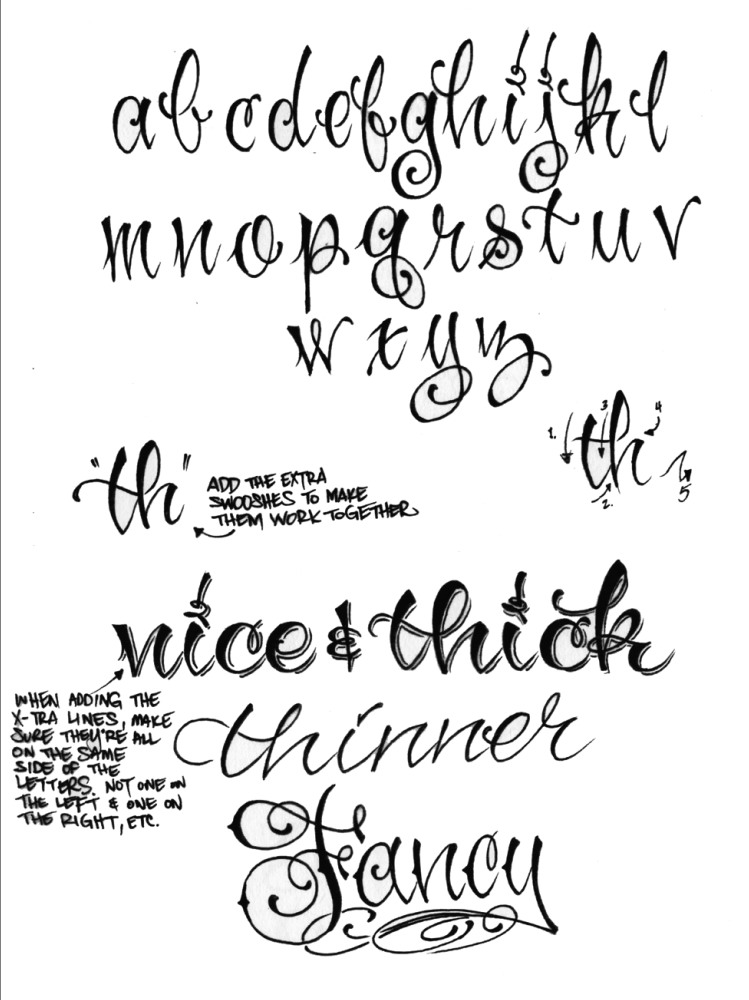 a b c d e f g h i j k l
m n o p q r s t u v
w x y z
1. 3 4
th
2. 5
"th"
ADD THE EXTRA
SWOOSHES TO MAKE
THEM WORK TOGETHER
nice & thick
WHEN ADDING THE
X-TRA LINES, MAKE
SURE THEY'RE ALL
ON THE SAME
SIDE OF THE
LETTERS. NOT ONE ON
THE LEFT & ONE ON
THE RIGHT, ETC.
thinner
Fancy